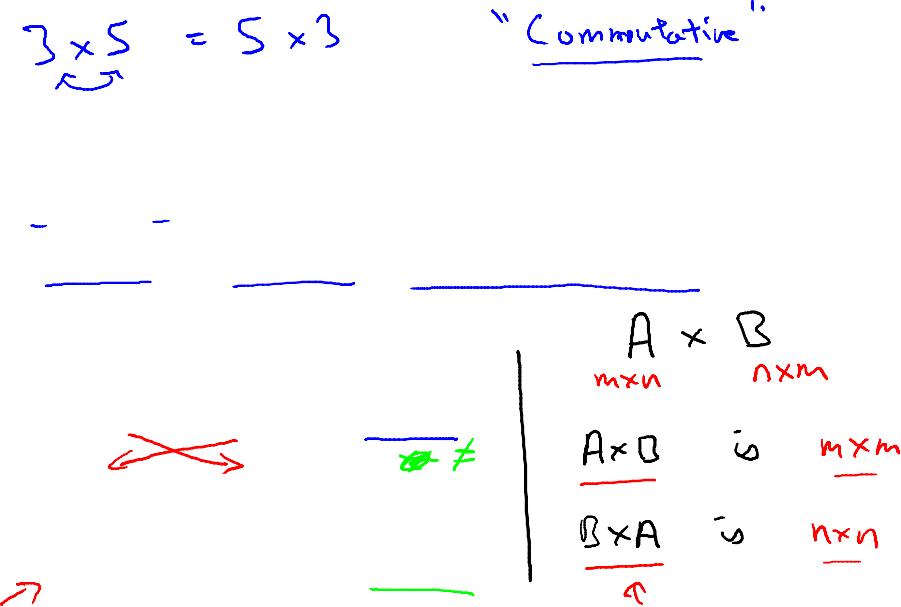 3 × 5 = 5 × 3 "Commutative"
A × B
m×n n×m
≠
A×B is m×m
B×A is n×n